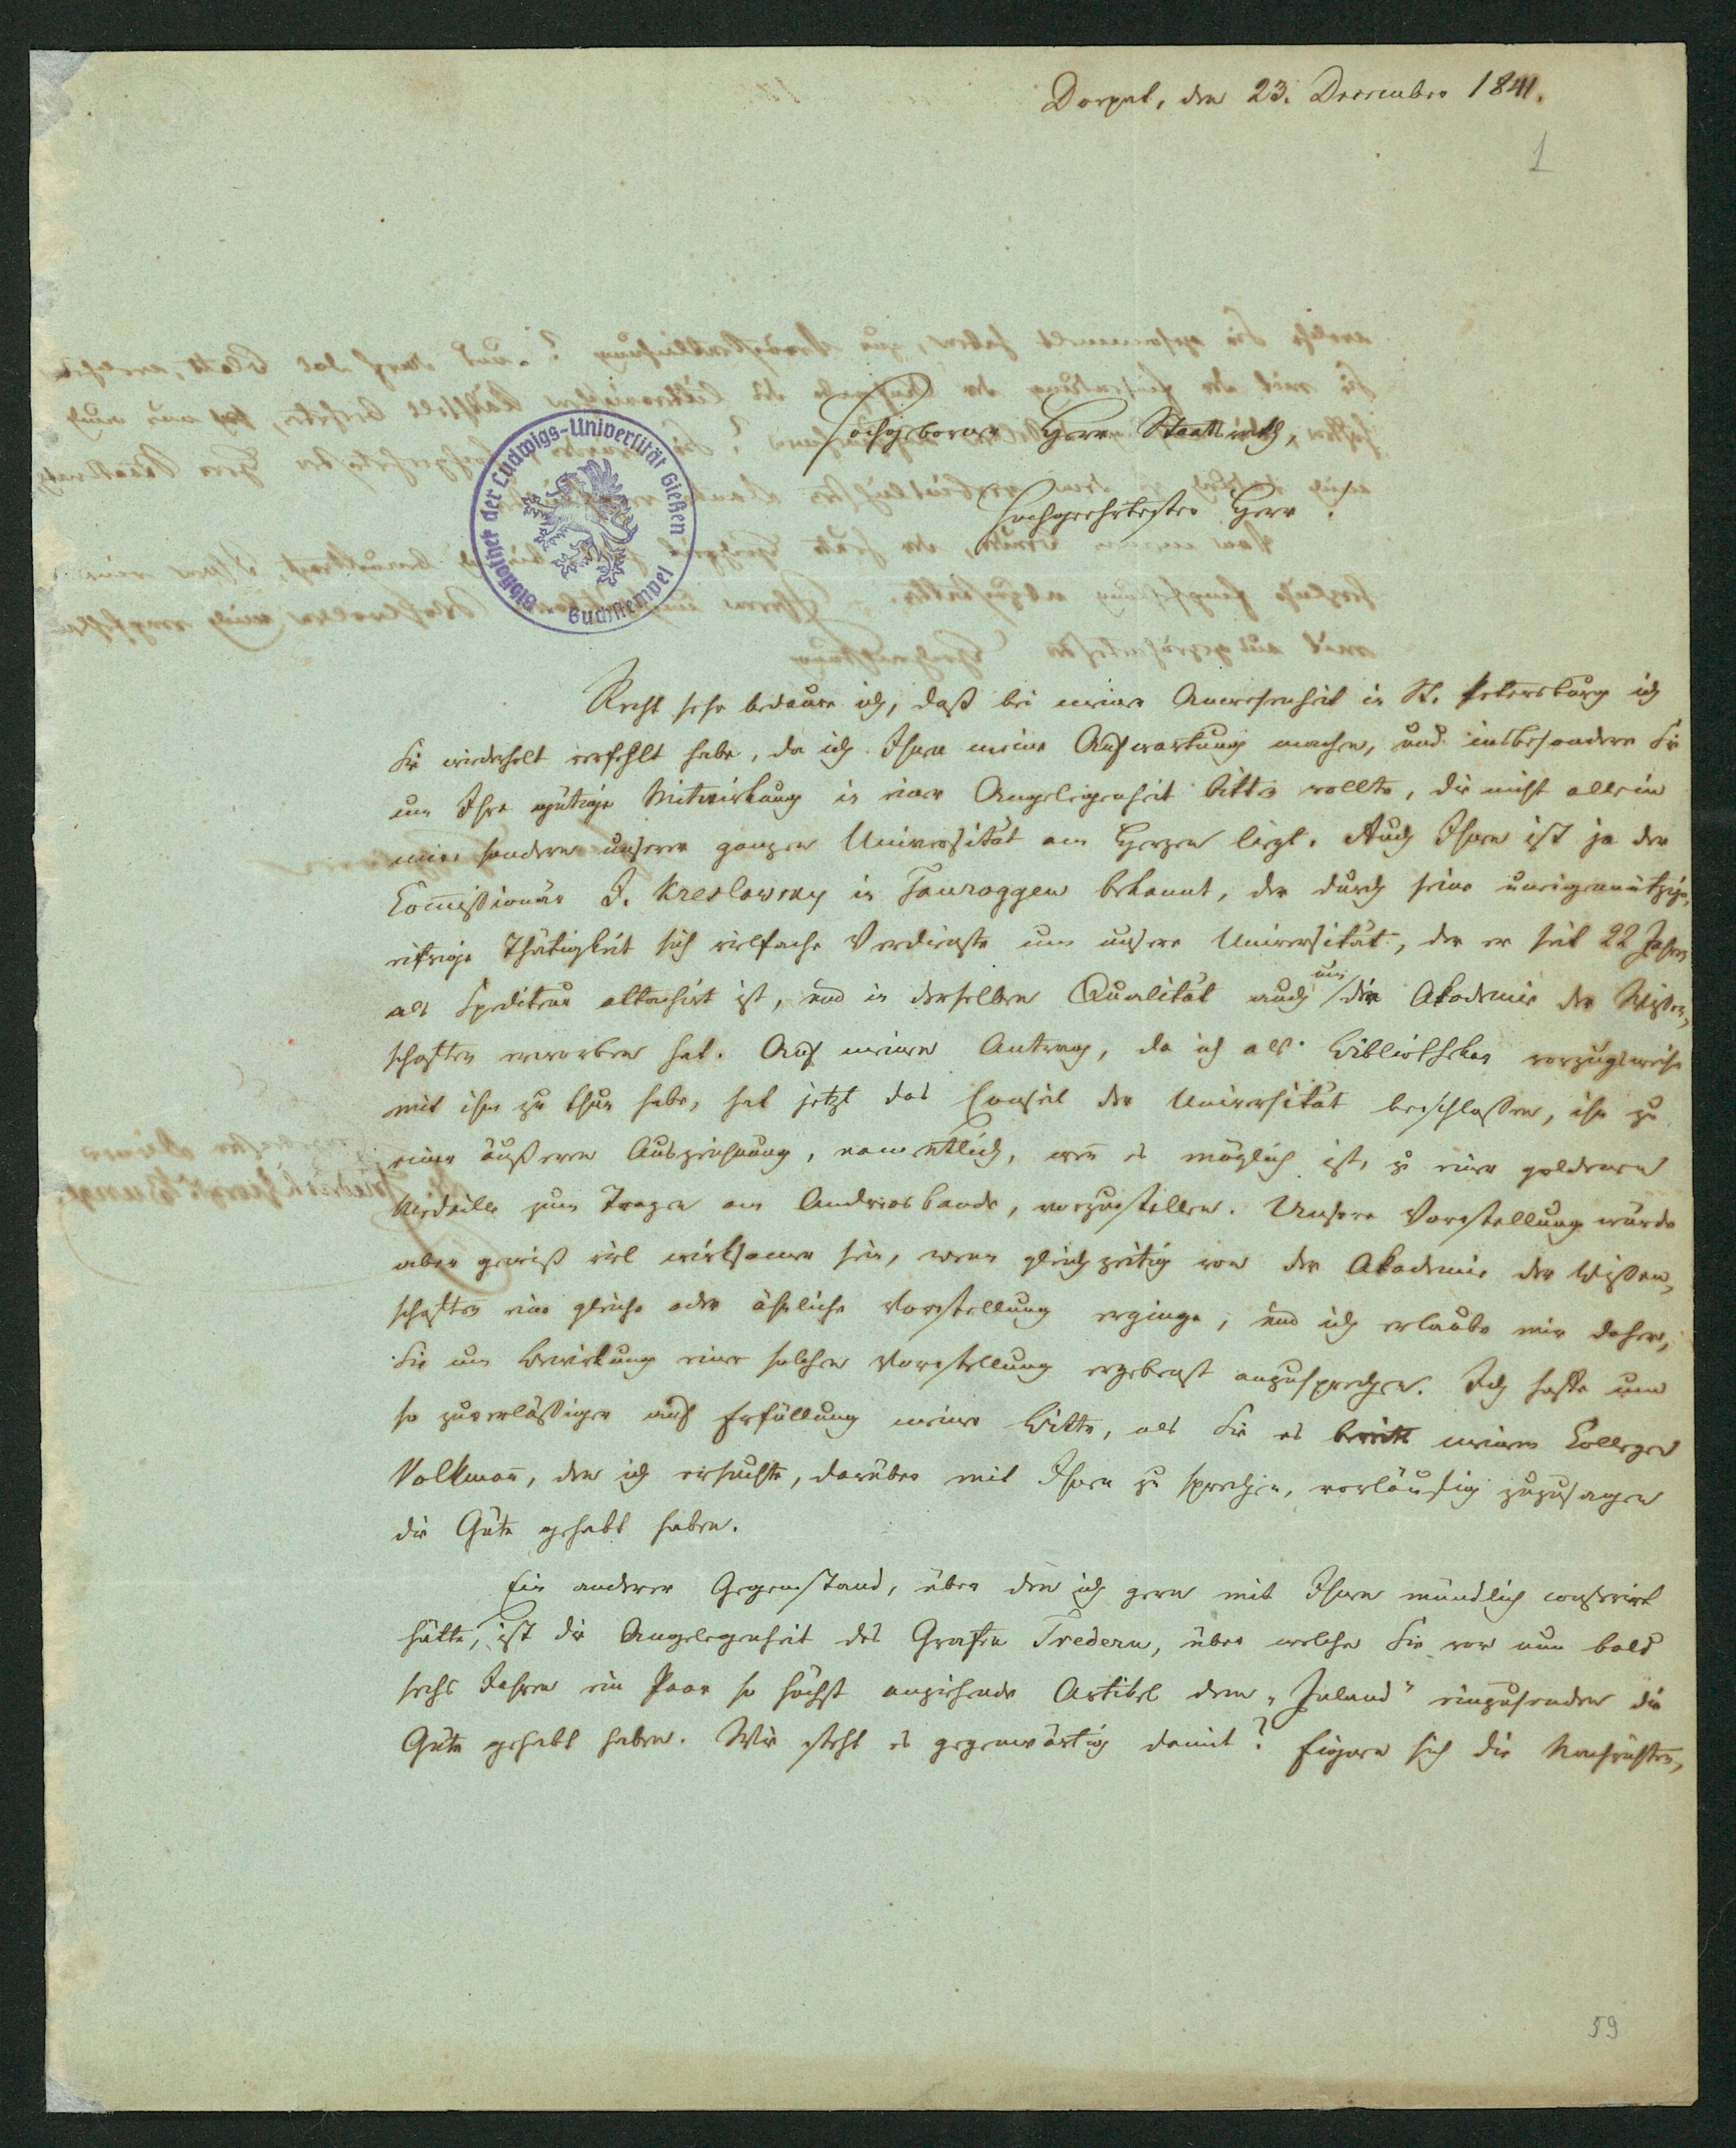 Dorpat, den 23. December 1841.
1
Hochgeborner Herr Staatsrath,
Hochgeehrtester Herr!
Bibliothek der Ludwigs-Universität Gießen
Buchstempel
Recht sehr bedaure ich, daß bei meiner Anwesenheit in St. Petersburg ich
Sie wiederholt verfehlt habe, da ich Ihnen meine Aufwartung machen, und insbesondere Sie
um Ihre gütige Mitwirkung in einer Angelegenheit bitten wollte, die nicht allein
mir sondern unserer ganzen Universität am Herzen liegt. Auch Ihnen ist ja der
Com̄issionär J. Kreslawsky in Tauroggen bekannt, der durch seine uneigennützige,
eifrige Thätigkeit sich vielfache Verdienste um unsere Universität, der er seit 22 Jahren
als Spediteur attachirt ist, und in derselben Qualität auch um die Akademie der Wissen-
schaften erworben hat. Auf meinen Antrag, da ich als Bibliothekar vorzugsweise
mit ihm zu thun habe, hat jetzt das Conseil der Universität beschlossen, ihn zu
einer äußeren Auszeichnung, namentlich, wen̄ es möglich ist, zu einer goldenen
Medaille zum Tragen am Andreasbande, vorzustellen. Unsere Vorstellung würde
aber gewiß viel wirksamer sein, wenn gleichzeitig von der Akademie der Wissen-
schaften eine gleiche oder ähnliche Vorstellung erginge, und ich erlaube mir daher,
Sie um Bewirkung einer solchen Vorstellung ergebenst anzusprechen. Ich hoffe um
so zuverlässiger auf Erfüllung meiner Bitte, als Sie es bereits meinem Collegen
Volkman̄, den ich ersuchte, darüber mit Ihnen zu sprechen, vorläufig zuzusagen
die Güte gehabt haben.
Ein anderer Gegenstand, über den ich gern mit Ihnen mündlich conferirt
hätte, ist die Angelegenheit des Grafen Tredern, über welche Sie vor nun bald
sechs Jahren ein Paar so höchst anziehende Artikel dem „Inland" einzusenden die
Güte gehabt haben. Wie steht es gegenwärtig damit? Eignen sich die Nachrichten,
59